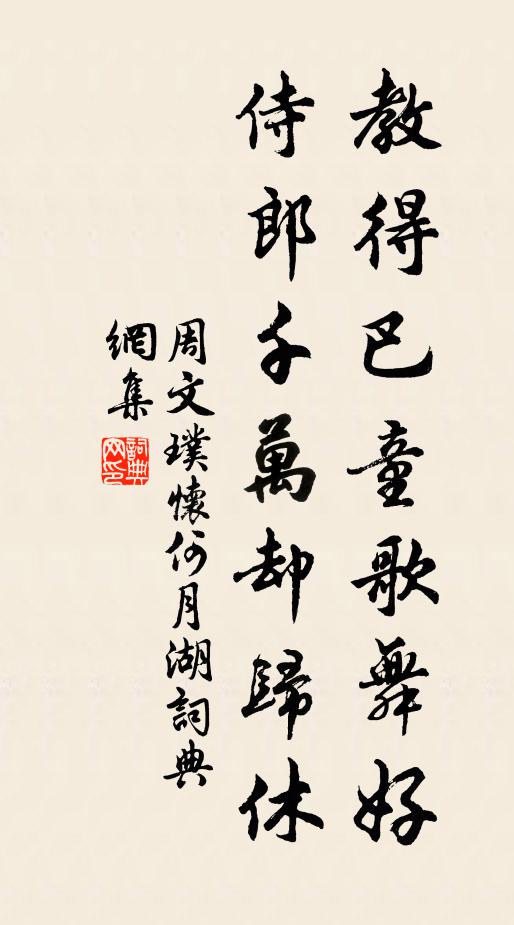 教得巴童歌舞好
侍郎千萬却歸休
周文璞懷何月湖詞典
網集
詞典
网印